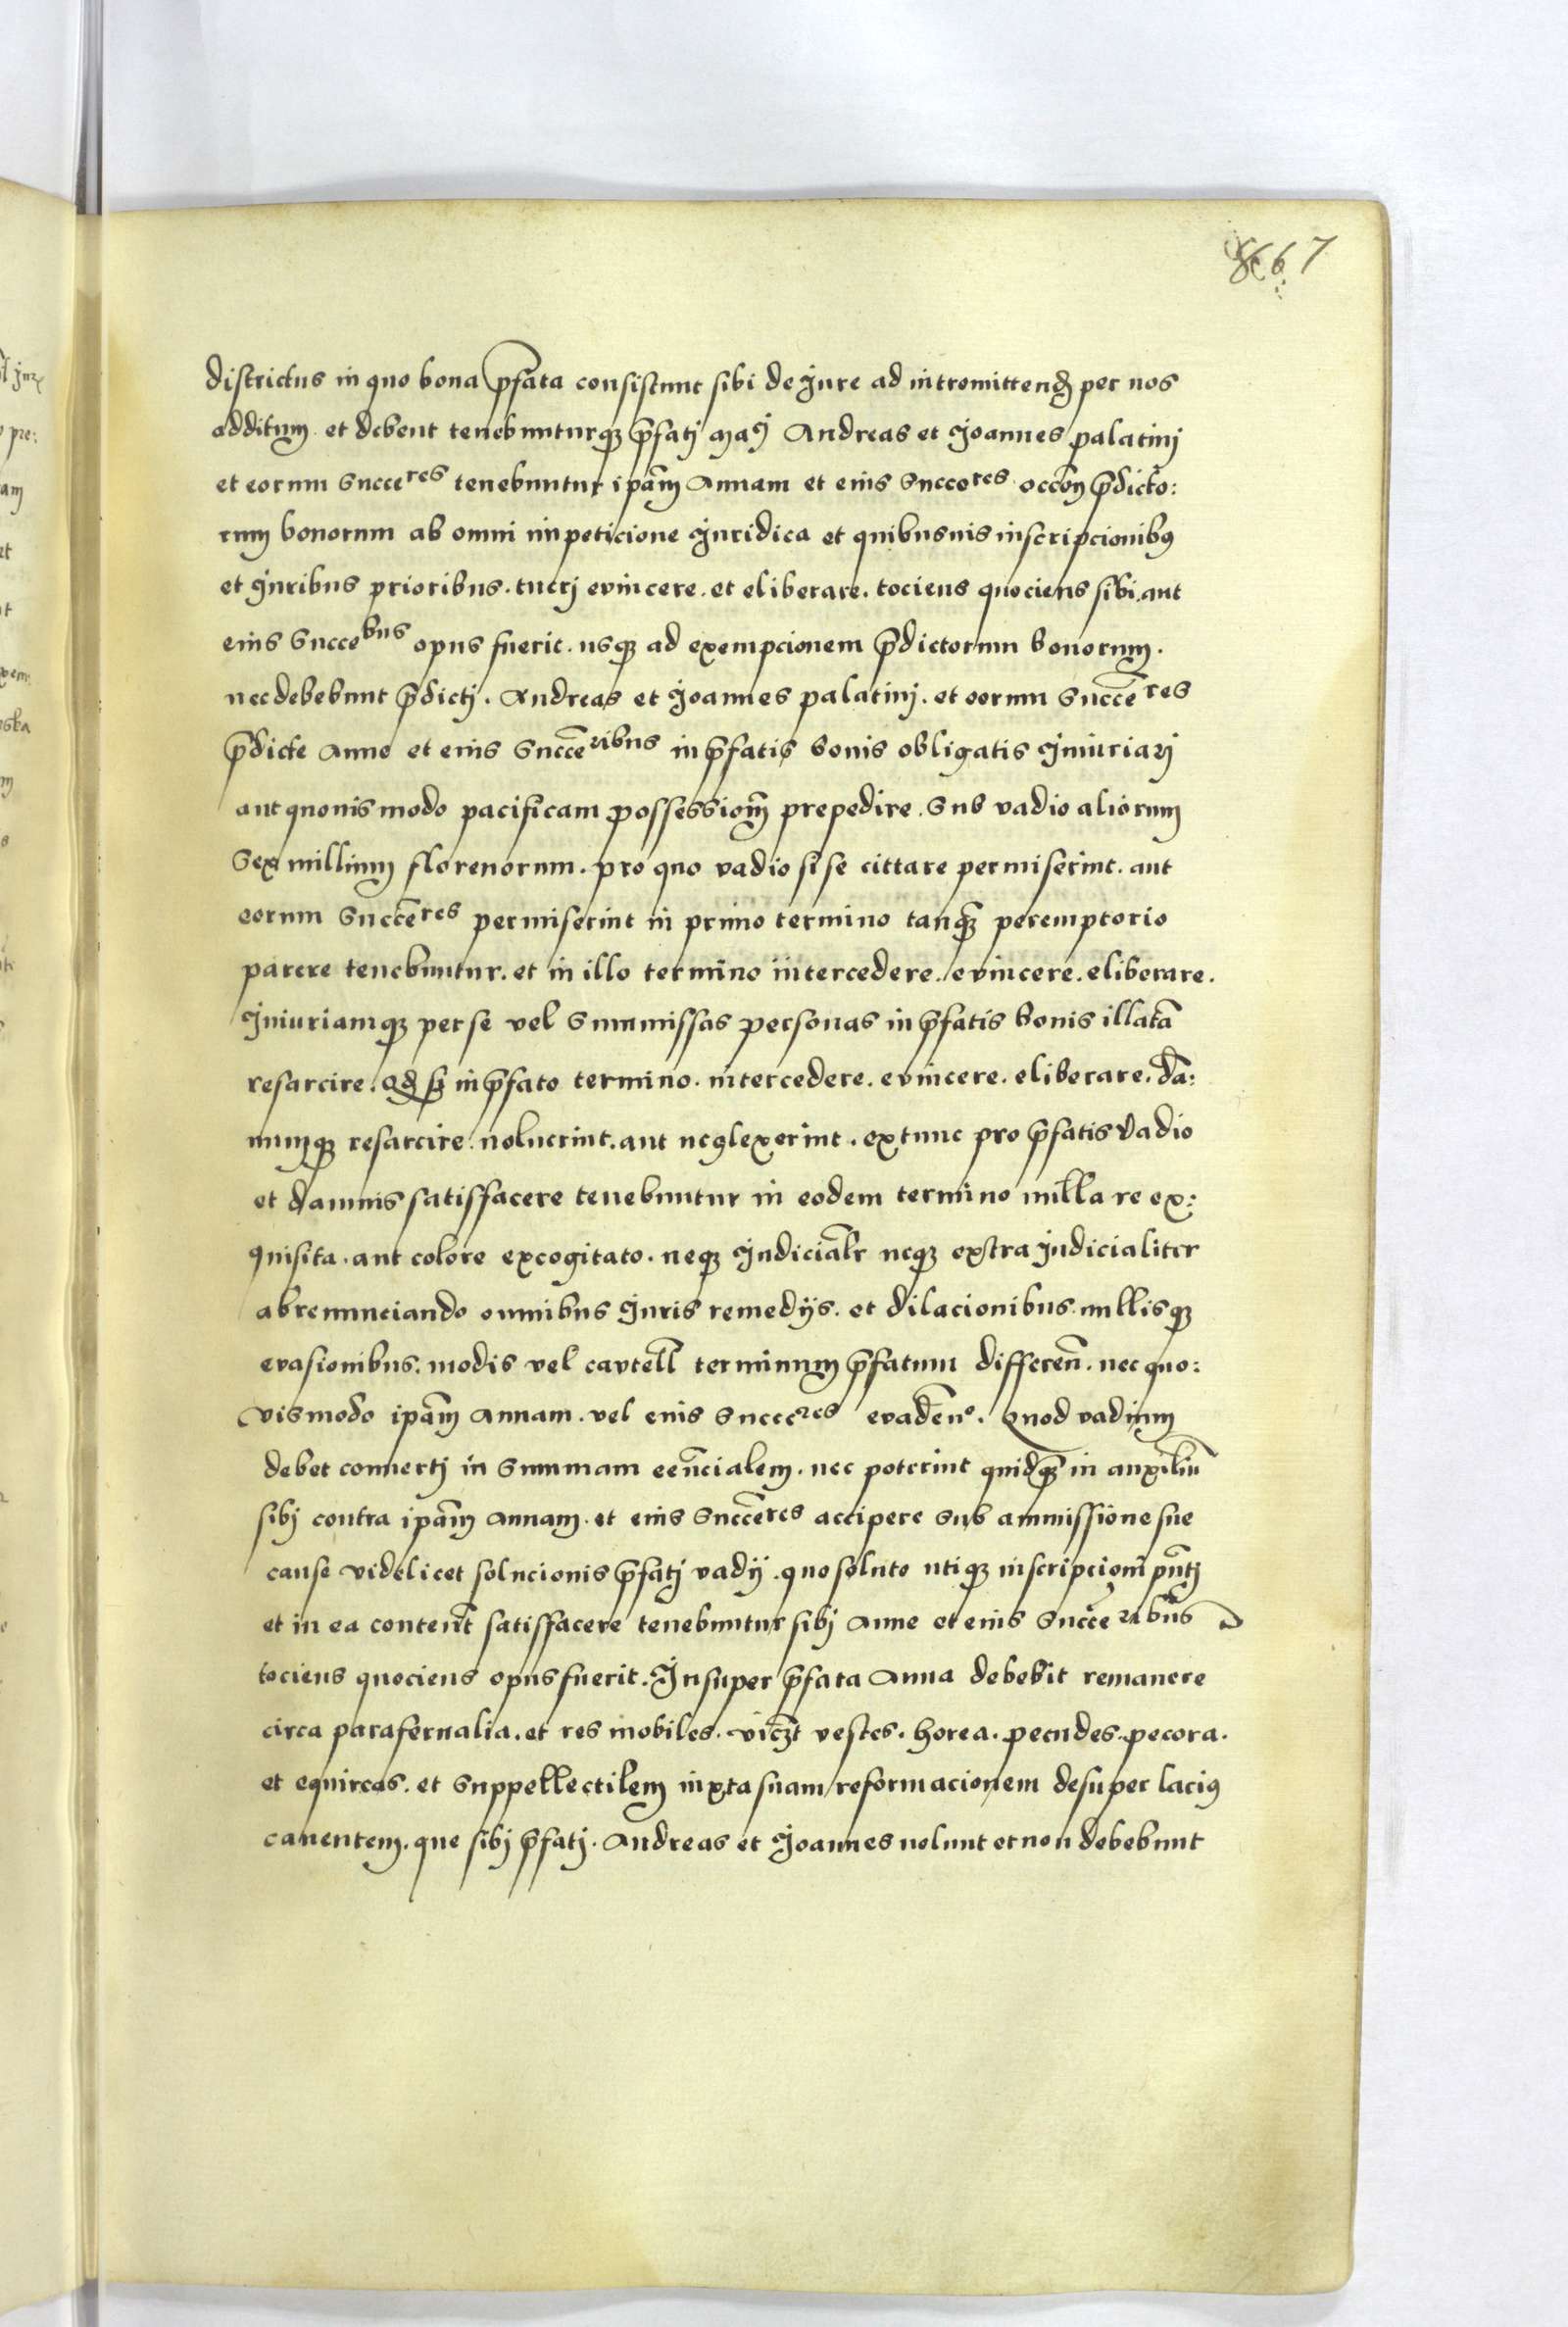 67
districtus in quo bona p̄fata consistunt sibi de Jure ad intromittend̄ per nos
additum. et debent tenebunturq̄ p̄fatj Andreas et Joannes palatinj
et eorum Succe^res tenebuntur ip̄am Annam et eius Succe^res occ̄oē p̄dicto:
rum bonorum ab omni impeticione Juridica et quibusuis inscripcionibus
et Juribus prioribus. tuerj evincere. et eliberare. tociens quociens sibi. aut
eius Succe^bus opus fuerit. usq̄ ad exempcionem p̄dictorum bonorum.
nec debebunt p̄dictj. Andreas et Joannes palatinj. et eorum Succē^res
p̄dicte Anne et eius Succē^ribus in p̄fatis bonis obligatis Iniuriarj
aut quouis modo pacificam possessiōm prepedire. Sub vadio aliorum
Sex millium florenorum. pro quo vadio si se cittare permiserint. aut
eorum Succē^res permiserint in primo termino tanq̄ peremptorio
parere tenebuntur. et in illo termino intercedere. evincere. eliberare.
Iniuriamq̄ per se vel Summissas personas in p̄fatis bonis illatā
resarcire. qd̄ si in p̄fato termino. intercedere. evincere. eliberare. dā:
mnumq̄ resarcire noluerint. aut neglexerint. ex tunc pro p̄fatis Vadio
et damnis satisfacere tenebuntur in eodem termino nulla re ex:
quisita. aut colore excogitato. neq̄ Judicialr̄ neq̄ extra judicialiter
abrenunciando omnibus Juris remedijs. et dilacionibus. nullisq̄
evasionibus. modis vel cavtell̄ terminum p̄fatum differen̄. nec quo:
vismodo ip̄am Annam. vel eius Succe^res evaden̄o. Quod vadium
debet conuertj in Summam eēncialem. nec poterint quidq̄ in auxiliū
sibj contra ip̄am Annam. et eius Succē^res accipere sub ammissione sue
cause videlicet solucionis p̄fatj vadij. quo soluto utiq̄ inscripcioni pn̄tj
et in ea content̄ satisfacere tenebuntur sibj Anne et eius Succē^ribus
tociens quociens opus fuerit. Insuper p̄fata Anna debebit remanere
circa parafernalia. et res mobiles. viczt vestes. horea. pecudes. pecora.
et equireas. et Suppellectilem iuxta suam reformacionem desuper lacius
canentem. que sibj p̄fatj. Andreas et Joannes nolunt et non debebunt